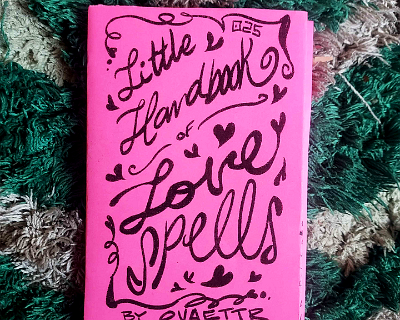 025
Little
Handbook
OF
Love
Spells
BY